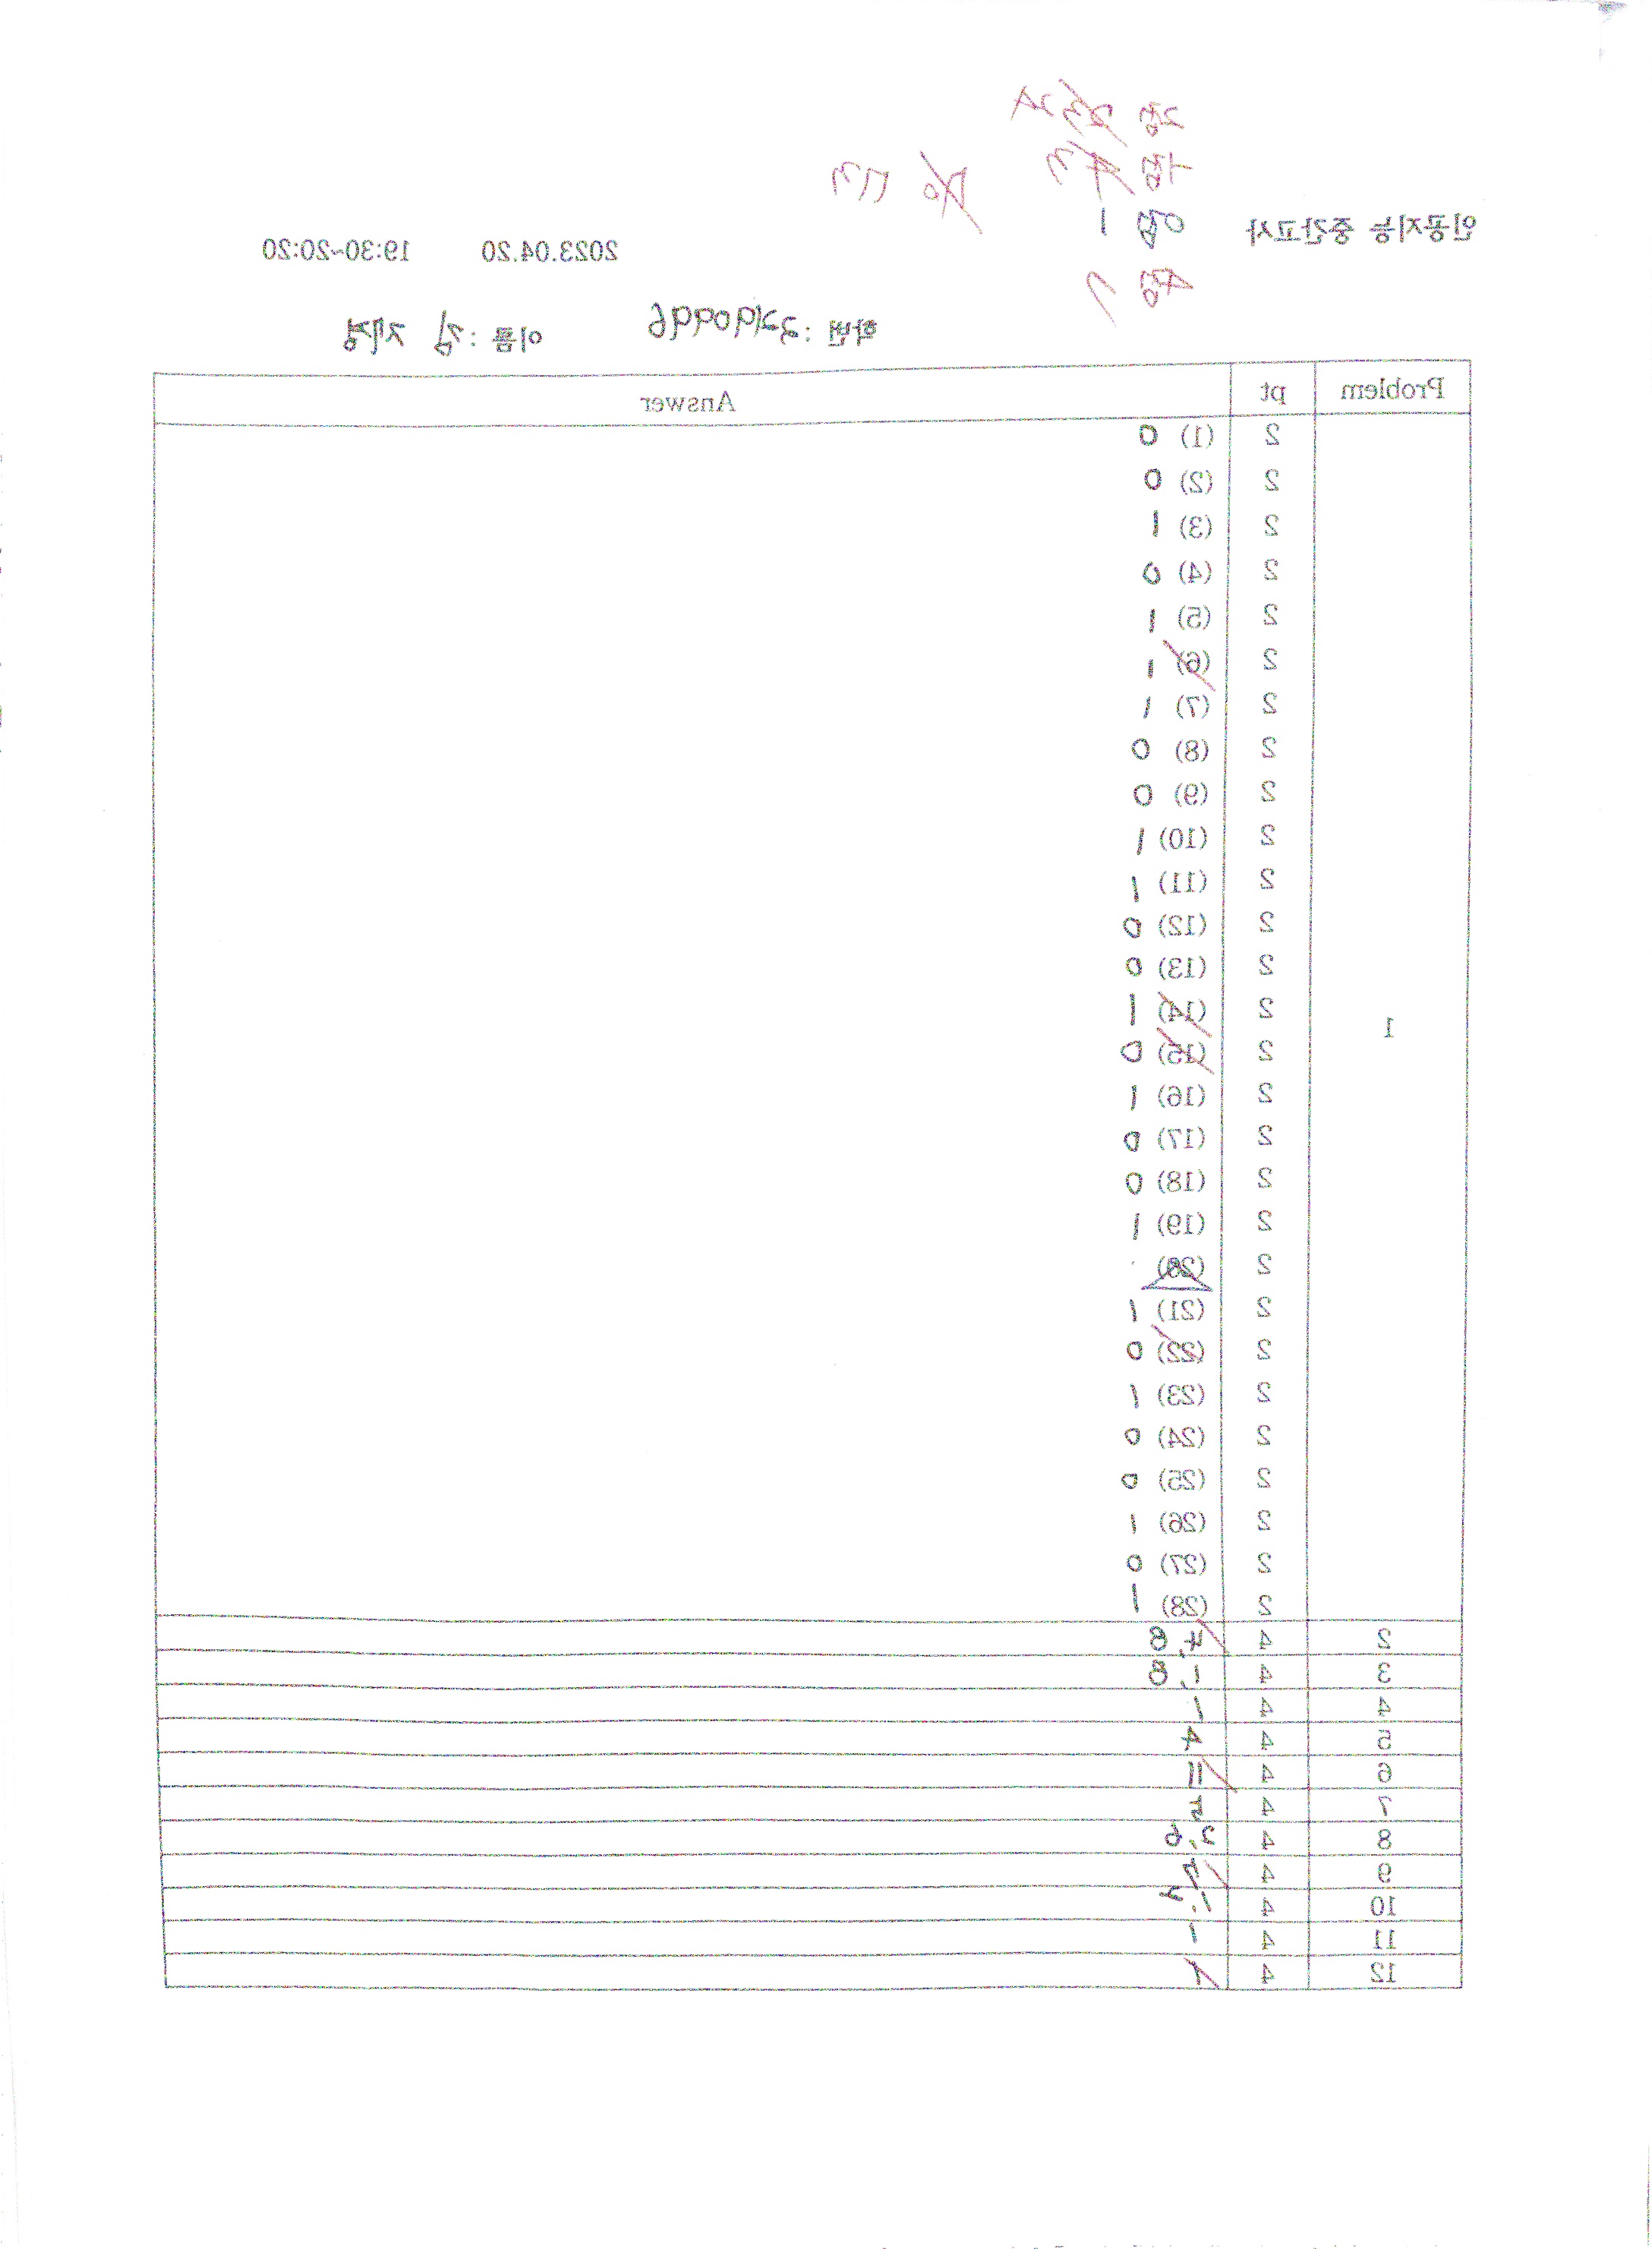 인공지능 중간고사
2023.04.20 19:30~20:20
학번 : 이름 : 김
Problem pt Answer
1
2 (1) 0
2 (2) 0
2 (3) 1
2 (4) 0
2 (5) 1
2 (6) 1
2 (7) 1
2 (8) 0
2 (9) 0
2 (10) 1
2 (11) 1
2 (12) 0
2 (13) 0
2 (14) 1
2 (15) 0
2 (16) 1
2 (17) 0
2 (18) 0
2 (19) 1
2 (20)
2 (21) 1
2 (22) 0
2 (23) 1
2 (24) 0
2 (25) 0
2 (26) 1
2 (27) 0
2 (28) 1
2 4 4, 8
3 4 1, 8
4 4 1
5 4 4
6 4 11
7 4 5
8 4 2, 6
9 4
10 4
11 4 1
12 4